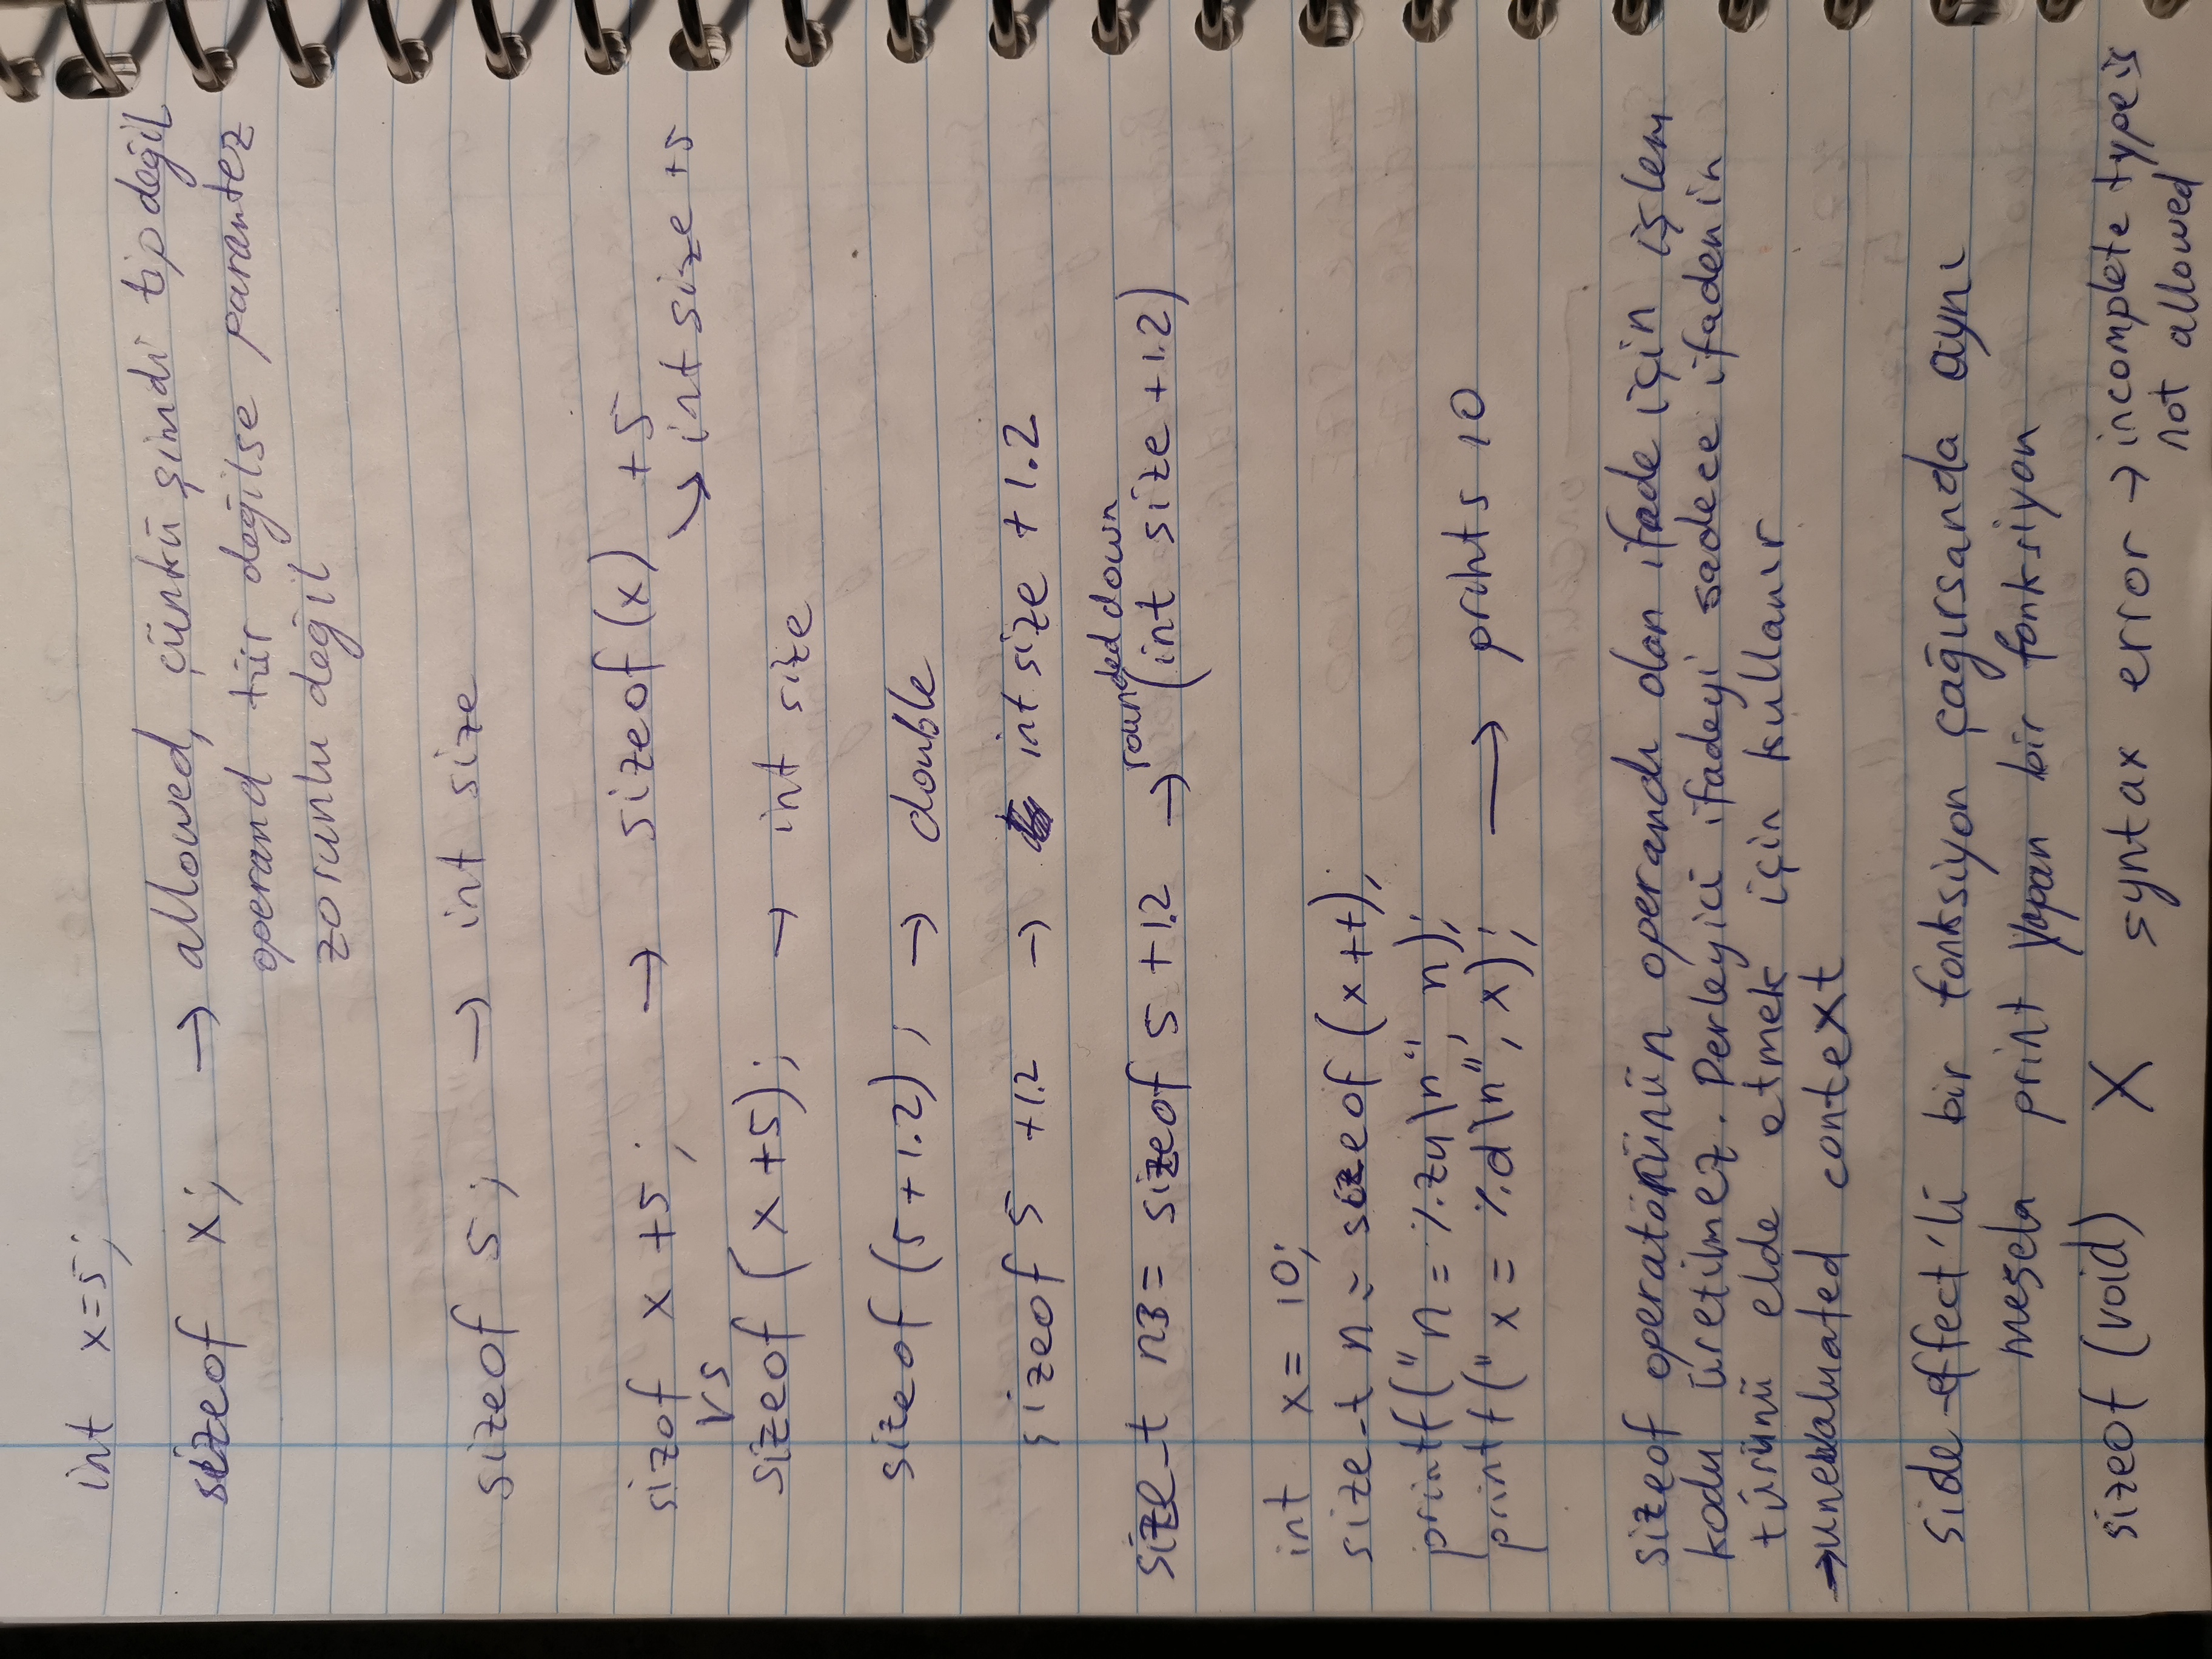 int x=5;
sizeof x; → allowed, çünkü şimdi tip değil
operand tür değilse parantez
zorunlu değil
sizeof 5; → int size
sizof x +5; → sizeof(x) +5
↘ int size +5
vs
sizeof (x +5); → int size
sizeof (5+1.2); → double
sizeof 5 +1.2 → int size + 1.2
rounded down
size_t n3= sizeof 5 +1.2 → (int size +1.2)
int x= 10;
size_t n = sizeof (x++);
printf("n = %zu\n", n);
printf("x = %d\n", x); → prints 10
sizeof operatörünün operandı olan ifade için işlem
kodu üretilmez. Derleyici ifadeyi sadece ifadenin
türünü elde etmek için kullanır
→unevaluated context
side-effect'li bir fonksiyon çağırsanda aynı
mesela print yapan bir fonksiyon
sizeof (void) X syntax error → incomplete type is
not allowed